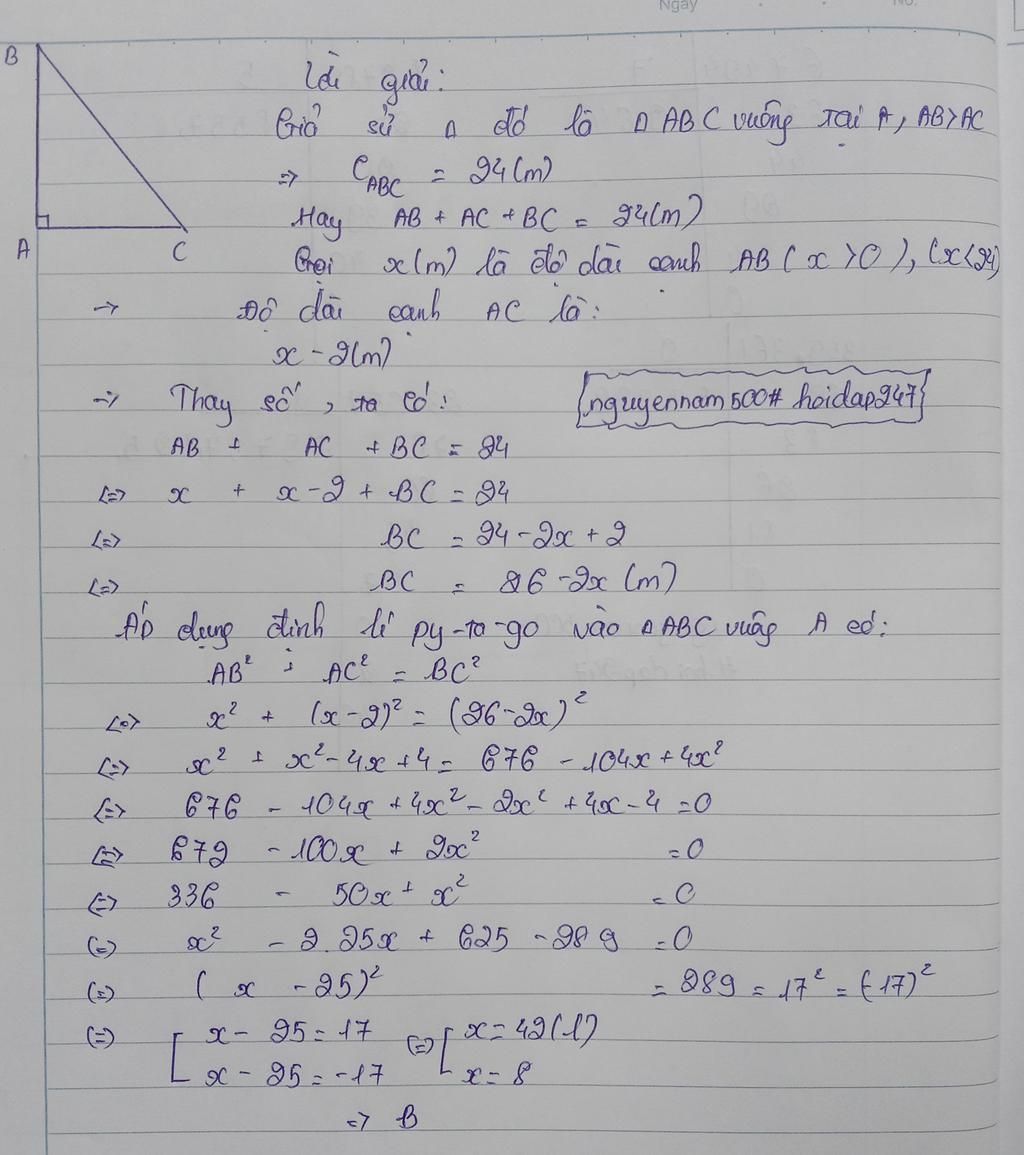 Ngày No.
B
Lời giải:
Giả sử Δ đó là Δ ABC vuông tại A, AB>AC
=> C_ABC = 24(m)
Hay AB + AC + BC = 24(m)
A C
Gọi x(m) là độ dài cạnh AB (x >0), (x<24)
-> Độ dài cạnh AC là:
x - 2(m)
-> Thay số, ta có:
nguyennam500# hoidap247
AB + AC + BC = 24
<=> x + x-2 + BC = 24
<=> BC = 24 - 2x + 2
<=> BC = 26 - 2x (m)
ÁD dụng định lí py-ta-go vào Δ ABC vuông A có:
AB² + AC² = BC²
<=> x² + (x-2)² = (26-2x)²
<=> x² + x² - 4x + 4 = 676 - 104x + 4x²
<=> 676 - 104x + 4x² - 2x² + 4x - 4 = 0
<=> 672 - 100x + 2x² = 0
<=> 336 - 50x + x² = 0
(=) x² - 2.25x + 625 - 289 = 0
(=) (x - 25)² = 289 = 17² = (-17)²
(=) [ x - 25 = 17 (=) [ x = 42(l)
x - 25 = -17 x = 8
=> B